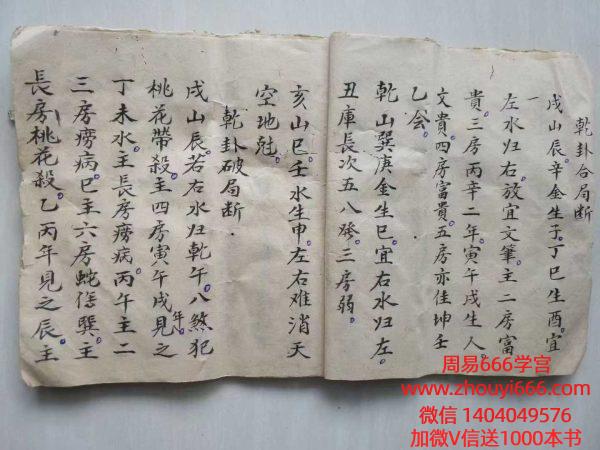 乾卦合局断
戌山辰辛金生子丁巳生酉宜
左水归右放宜文筆主二房富
貴三房丙辛二年寅午戌生人
文貴四房富貴五房亦佳坤壬
乙会
乾山巽庚金生巳宜右水归左
丑庫長次五八發三房弱
亥山巳壬水生申左右难消天
空地尅
乾卦破局断
戌山辰若右水归乾午八煞犯
桃花帶殺主四房寅午戌年見之
丁未水主長房癆病丙午主二
三房癆病巳主六房蛇傷巽主
長房桃花殺乙丙年見之辰主
周易666学宫
www.zhouyi666.com
微信 1404049576
加微V信送1000本书